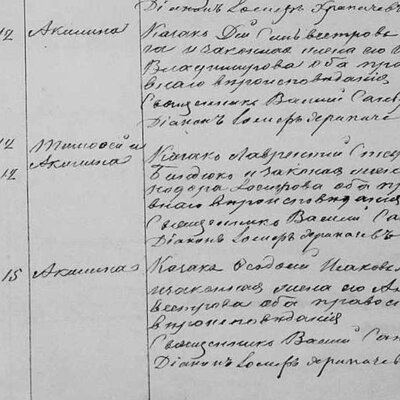 Діаконъ Іосифъ Храпачев
12 Акилина Казакъ
и законная жена его
Владимирова оба пра
внаго вѣроисповѣданія
Священникъ Василій Сав
Діаконъ Іосифъ Храпаче
12 Тимофей и Казакъ Лаврентій
12 Акилина и законная жена
Іосифова оба пр
внаго вѣроисповѣданія
Священникъ Василій Са
Діаконъ Іосифъ Храпачевъ
15 Акилина Казакъ Феодосій Исаковъ
и законная жена его
оба правос
вѣроисповѣданія
Священникъ Василій Сав
Діаконъ Іосифъ Храпачев